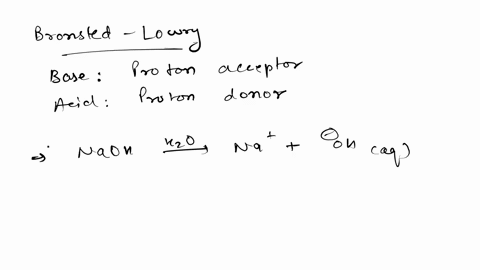 Bronsted - Lowry
Base : Proton acceptor
Acid : Proton donor
→ NaOH \xrightarrow{H₂O} Na⁺ + ⊖OH (aq)